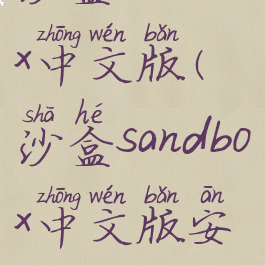 zhōng wén bǎn
x中文版(
shā hé
沙盒sandbo
zhōng wén bǎn ān
x中文版安